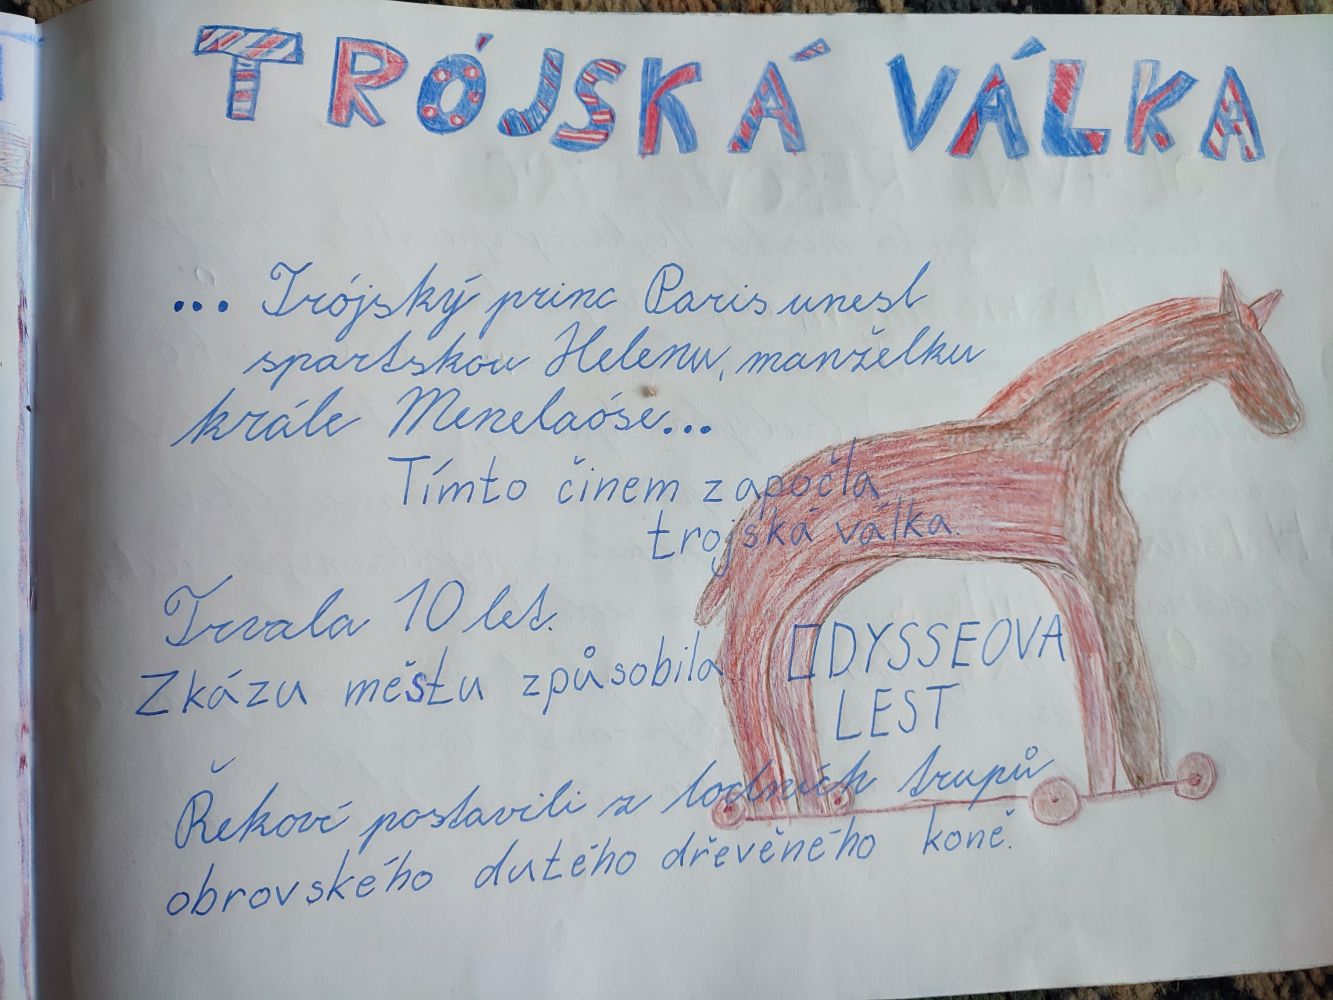 TRÓJSKÁ VÁLKA
... Trójský princ Paris unesl
spartskou Helenu, manželku
krále Menelaóse...
Tímto činem započla
trojská válka.
Trvala 10 let.
Zkázu městu způsobila ODYSSEOVA
LEST
Řekové postavili z lodních trupů
obrovského dutého dřevěného koně.